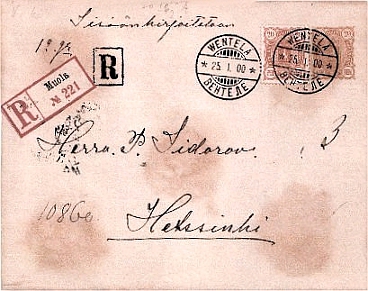 Sisäänkirjoitetaan
19 gr.
R
R
Muola
№ 221
WENTELA
* 25. I. 00 *
ВЕНТЕЛЕ
WENTELA
* 25. I. 00 *
ВЕНТЕЛЕ
20
20
Herra P. Sidorov.
1086
Helsinki